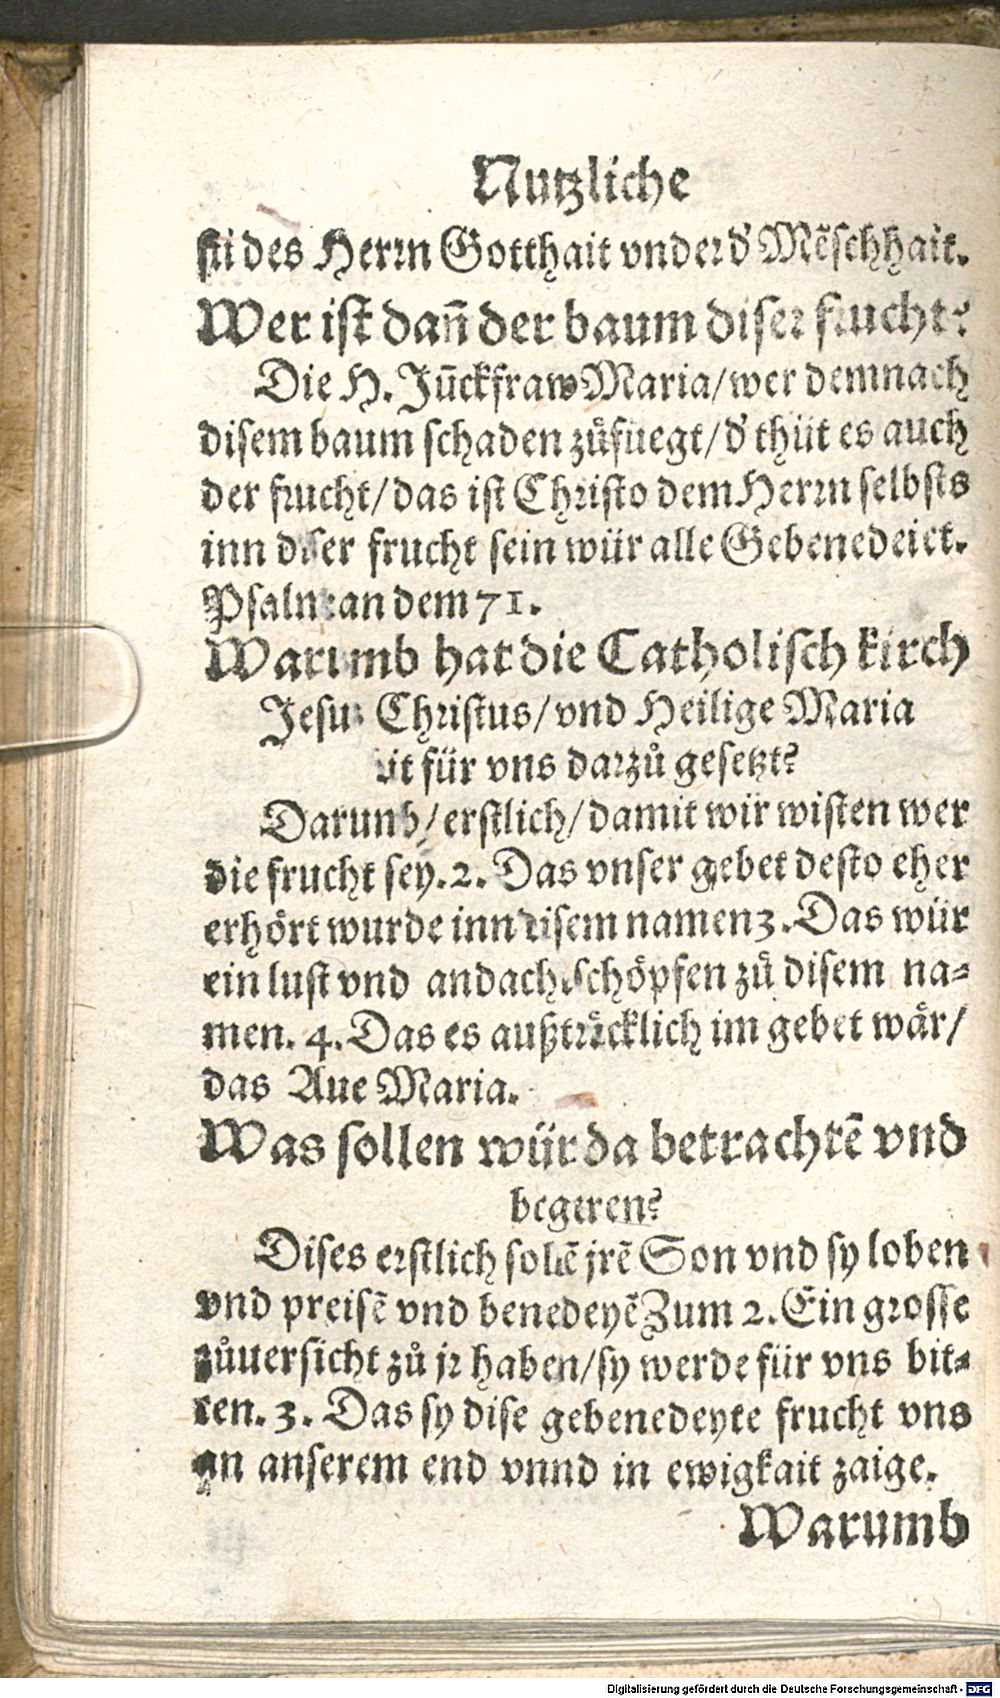 Nutzliche
sti des Herrn Gotthait vnder d' Mēschhait.
Wer ist dañ der baum diser frucht?
Die H. Jūckfraw Maria/wer demnach
disem baum schaden zůfuegt/d' thüt es auch
der frucht/das ist Christo dem Herrn selbsts
inn diser frucht sein wür alle Gebenedeiet.
Psalm an dem 71.
Warumb hat die Catholisch kirch
Jesus Christus/vnd Heilige Maria
bit für vns darzů gesetzt?
Darumb/erstlich/damit wir wisten wer
die frucht sey.2. Das vnser gebet desto eher
erhört wurde inn disem namen3.Das wür
ein lust vnd andacht schöpfen zů disem na-
men. 4. Das es außträcklich im gebet wär/
das Aue Maria.
Was sollen wür da betrachtē vnd
begeren?
Dises erstlich sollē jrē Son vnd sy loben
vnd preisē vnd benedeyē Zum 2. Ein grosse
zůuersicht zů jr haben/sy werde für vns bit-
ten. 3. Das sy dise gebenedeyte frucht vns
an anserem end vnnd in ewigkait zaige.
Warumb
Digitalisierung gefördert durch die Deutsche Forschungsgemeinschaft - DFG